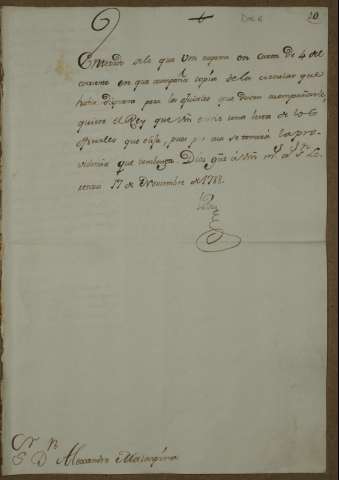 Doc 6
20
Enterado de lo que Vm. expone en carta de 4 del
corriente en que acompaña copia de la circular que
havia dispuesto para los oficiales que deven acompañarle,
quiere el Rey que Vm. envie una lista de los
oficiales que elija, para
videncia que convenga. Dios gue. á Vm. ms. as. Sn. Lo-
renzo 17 de Noviembre de 1788.
Sr. Dn. Alexandro Malaspina